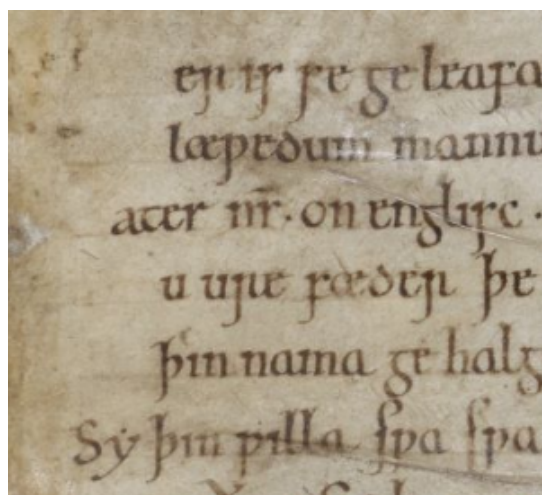 er is se ge leafa
læƿedum mannu
ater nr̄· on englisc ·
u ure fæder þe
þin nama ge halg
Sẏ þin ƿilla sƿa sƿa